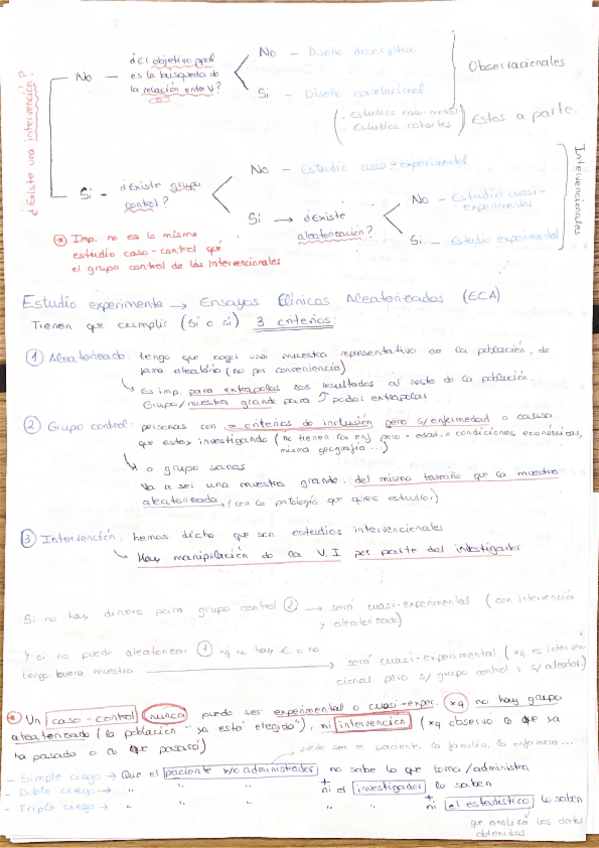 ¿Existe una intervención?
No — ¿El objetivo ppal es la búsqueda de la relación entre V?
No — Diseño descriptivo
Si — Diseño correlacional
Observacionales
(- Estudios caso-control
- Estudios cohortes) Estos a parte.
Si — ¿Existe grupo control?
No — Estudio cuasi-experimental
Si → ¿Existe aleatorización?
No — Estudio cuasi-experimental
Si — Estudio experimental
Intervencionales
* Imp. no es lo mismo
estudio caso-control que
el grupo control de los intervencionales
Estudio experimental → Ensayos Clínicos Aleatorizados (ECA)
Tienen que cumplir (Si o si) 3 criterios:
1 Aleatorizado: tengo que coger una muestra representativa de la población, de
forma aleatoria (no por conveniencia)
↳ Es imp. para extrapolar los resultados al resto de la población.
Grupo/muestra grande para ↑ poder extrapolar
2 Grupo control: personas con = criterios de inclusión pero s/enfermedad o causa
que estoy investigando (no tienen la enf pero = edad, = condiciones económicas,
misma geografía ...)
↳ o grupo sanas
Va a ser una muestra grande, del mismo tamaño que la muestra
aleatorizada → (con la patología que quiero estudiar)
3 Intervención: hemos dicho que son estudios intervencionales
↳ Hay manipulación de la V.I por parte del investigador
Si no hay dinero para grupo control 2 → será cuasi-experimental (con intervención
y aleatorizado)
Y si no puede aleatorizar 1 xq no hay € o no
tengo buena muestra → será cuasi-experimental (xq es interven-
cional pero s/ grupo control y s/aleator.)
* Un caso-control nunca puede ser experimental o cuasi-exper. xq no hay grupo
aleatorizado (la población "ya está elegida"), ni intervención (xq observo lo que ya
ha pasado o lo que pasará)
puede ser el paciente, la familia, la enfermera...
- Simple ciego → Que el paciente y/o administrador no sabe lo que toma/administra
- Doble ciego → " " " " + ni el investigador lo saben
- Triple ciego → " " " " " + ni el estadístico lo saben
que analiza los datos
obtenidos